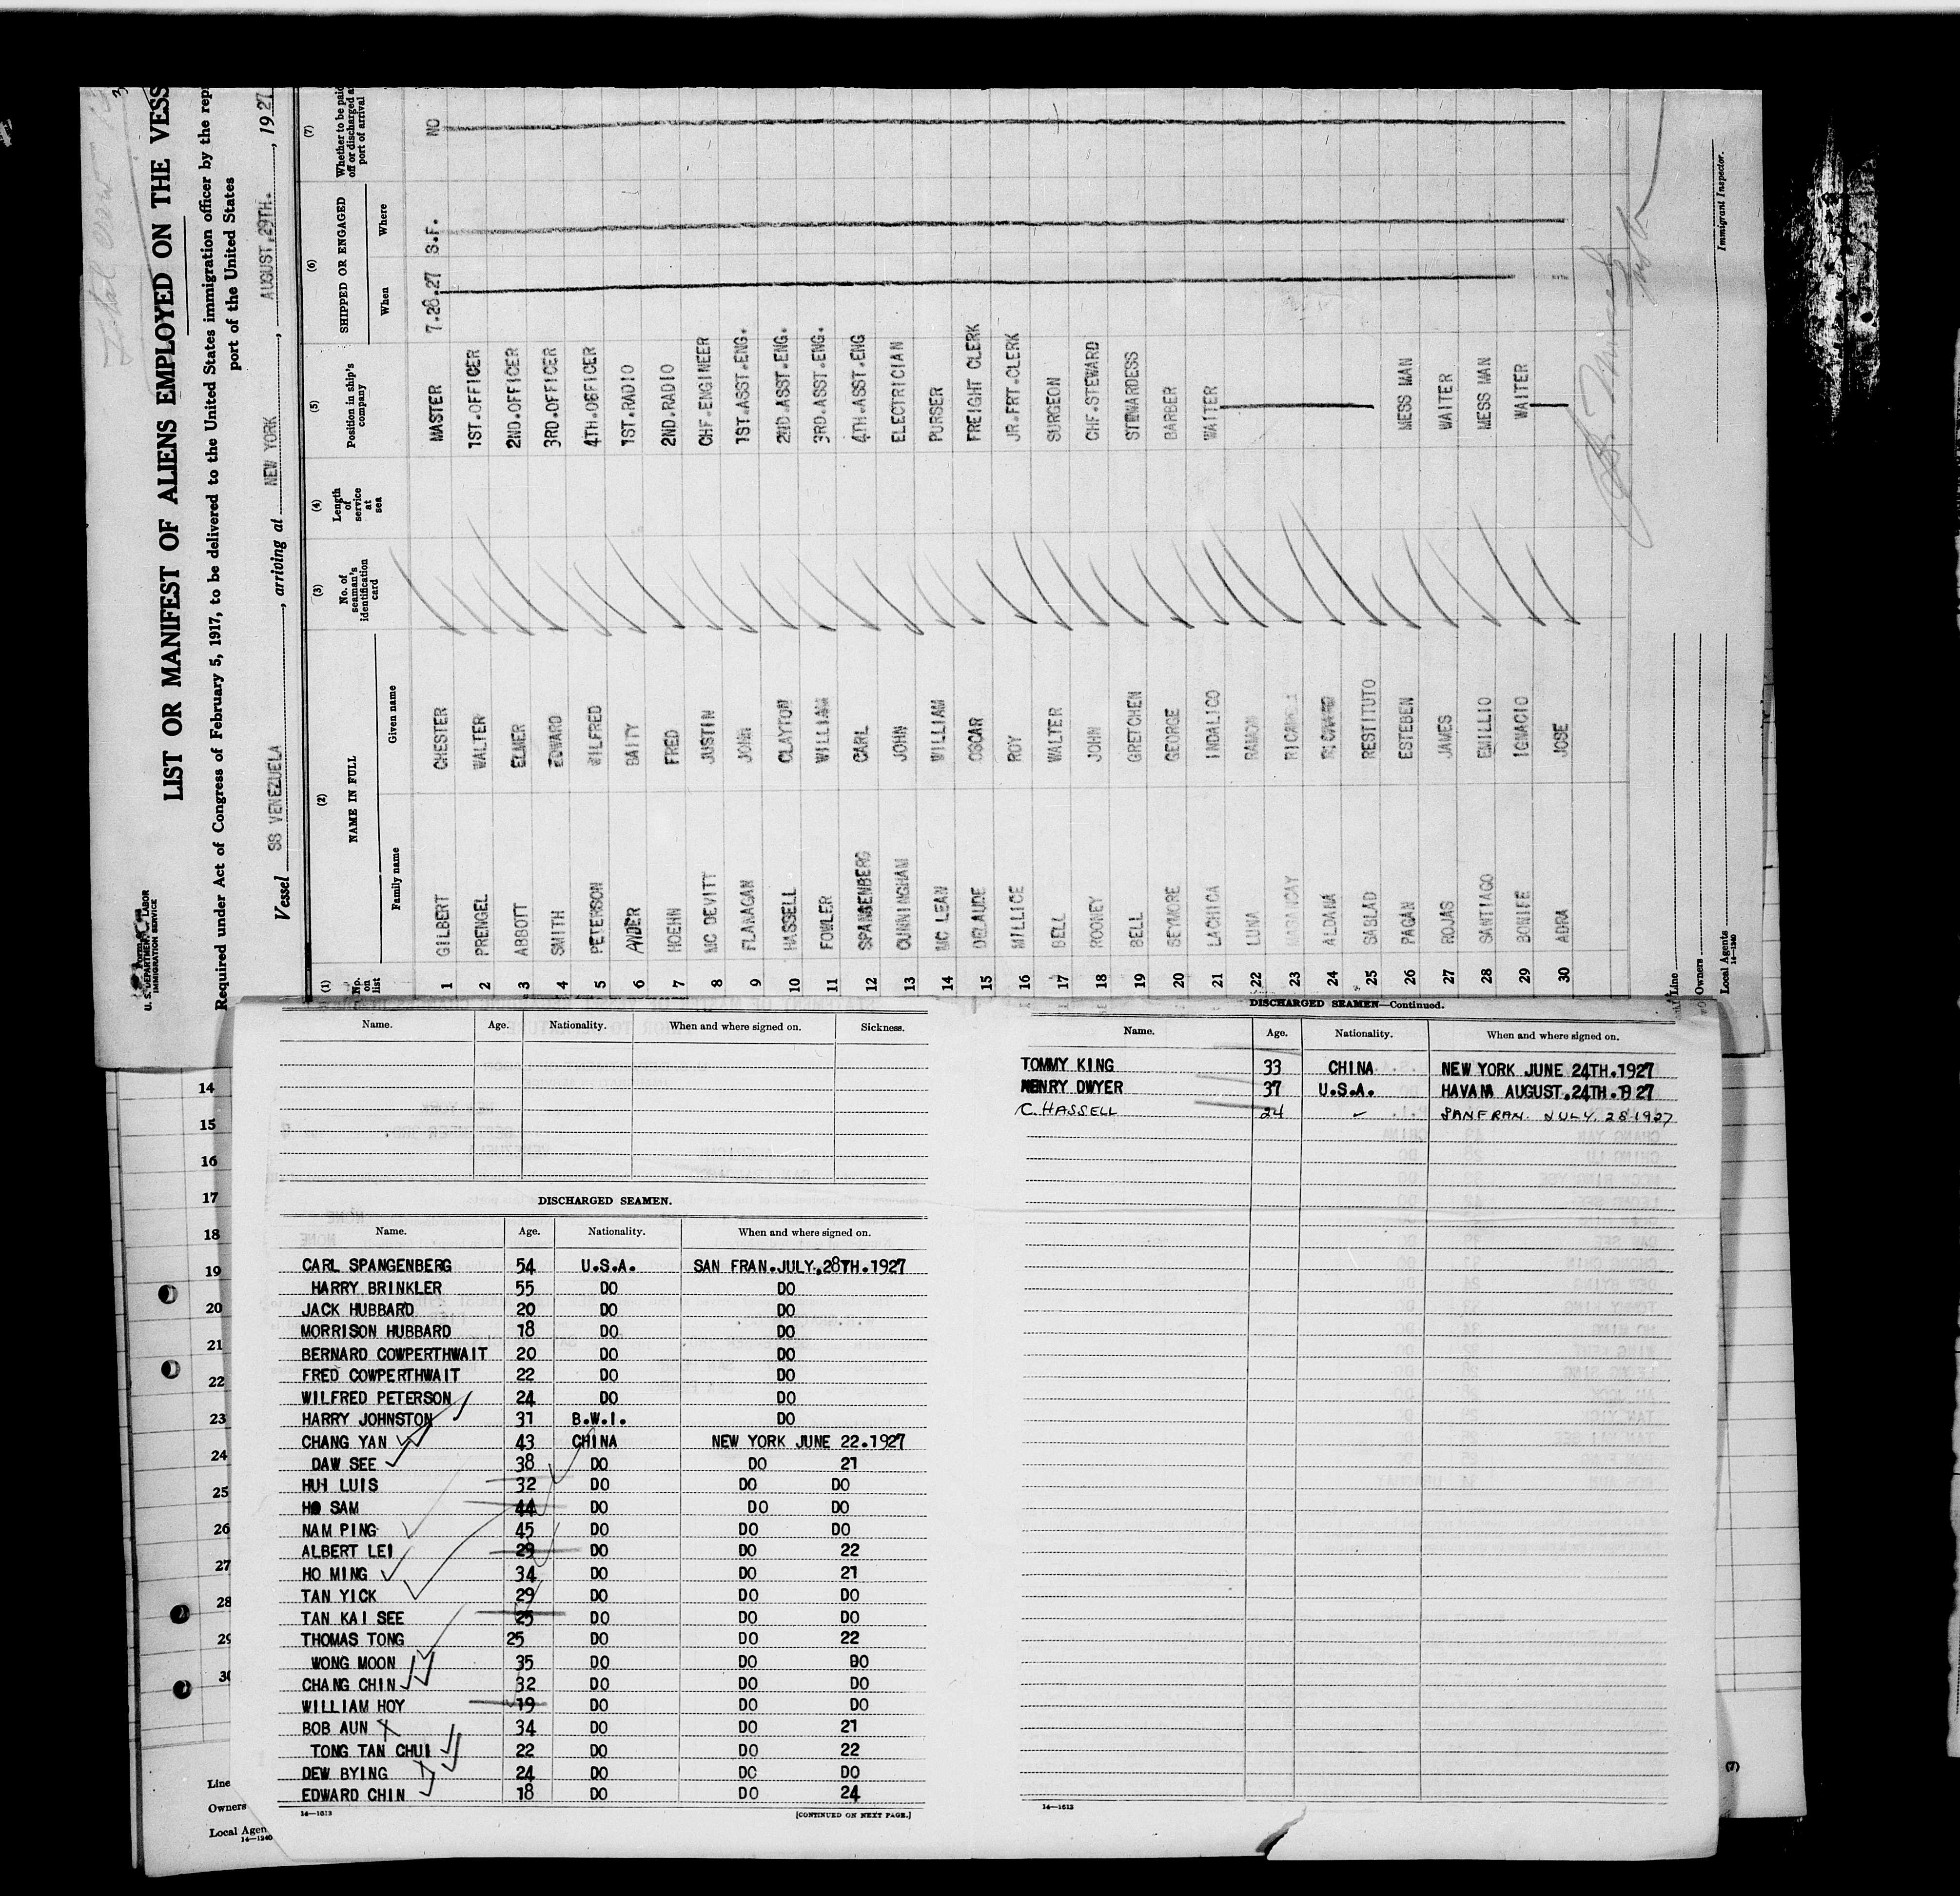 LIST OR MANIFEST OF ALIENS EMPLOYED ON THE VESS
Required under Act of Congress of February 5, 1917, to be delivered to the United States immigration officer by the rep
port of the United States
U. S. DEPARTMENT OF LABOR
IMMIGRATION SERVICE
Vessel SS VENEZUELA, arriving at NEW YORK, AUGUST.29TH., 1927
(1) (2) (3) (4) (5) (6) (7)
No. on list NAME IN FULL No. of seaman's identification card Length of service at sea Position in ship's company SHIPPED OR ENGAGED Whether to be paid off or discharged at port of arrival
Family name Given name When Where
1 GILBERT CHESTER MASTER 7.28.27 S.F. NO
2 PRENGEL WALTER 1ST.OFFICER
3 ABBOTT ELMER 2ND.OFFICER
4 SMITH EDWARD 3RD.OFFICER
5 PETERSON WILFRED 4TH.OFFICER
6 ANDER BAITY 1ST.RADIO
7 HOEHN FRED 2ND.RADIO
8 MC DEVITT JUSTIN CHF.ENGINEER
9 FLANAGAN JOHN 1ST.ASST.ENG.
10 HASSELL CLAYTON 2ND.ASST.ENG.
11 FOWLER WILLIAM 3RD.ASST.ENG.
12 SPANGENBERG CARL 4TH.ASST.ENG
13 CUNNINGHAM JOHN ELECTRICIAN
14 MC LEAN WILLIAM PURSER
15 DELAUDE OSCAR FREIGHT CLERK
16 MILLICE ROY JR.FRT.CLERK
17 BELL WALTER SURGEON
18 ROONEY JOHN CHF.STEWARD
19 BELL GRETCHEN STEWARDESS
20 SEYMORE GEORGE BARBER
21 LACHICA INDALICO WAITER
22 LUNA RAMON
23
24 ALDANA RICHARD
25 SABLAD RESTITUTO
26 PAGAN ESTEBEN MESS MAN
27 ROJAS JAMES WAITER
28 SANTIAGO EMILLIO MESS MAN
29 BONIFE IGNACIO WAITER
30 ADRA JOSE
Line
Owners
Local Agents
14—1240
Immigrant Inspector.
14
15
16
17
18
19
20
21
22
23
24
25
26
27
28
29
30
Line
Owners
Local Agen
14—1240
Name. Age. Nationality. When and where signed on. Sickness.
DISCHARGED SEAMEN.
Name. Age. Nationality. When and where signed on.
CARL SPANGENBERG 54 U.S.A. SAN FRAN.JULY.,28TH.1927
HARRY BRINKLER 55 DO DO
JACK HUBBARD 20 DO DO
MORRISON HUBBARD 18 DO DO
BERNARD COWPERTHWAIT 20 DO DO
FRED COWPERTHWAIT 22 DO DO
WILFRED PETERSON 24 DO DO
HARRY JOHNSTON 31 B.W.I. DO
CHANG YAN 43 CHINA NEW YORK JUNE 22.1927
DAW SEE 38 DO DO 21
HUI LUIS 32 DO DO DO
HO SAM 44 DO DO DO
NAM PING 45 DO DO DO
ALBERT LEI 29 DO DO 22
HO MING 34 DO DO 21
TAN YICK 29 DO DO DO
TAN KAI SEE 25 DO DO DO
THOMAS TONG 25 DO DO 22
WONG MOON 35 DO DO DO
CHANG CHIN 32 DO DO DO
WILLIAM HOY 19 DO DO DO
BOB AUN 34 DO DO 21
TONG TAN CHUI 22 DO DO 22
DEW BYING 24 DO DO DO
EDWARD CHIN 18 DO DO 24
14—1613
[CONTINUED ON NEXT PAGE.]
DISCHARGED SEAMEN—Continued.
Name. Age. Nationality. When and where signed on.
TOMMY KING 33 CHINA NEW YORK JUNE 24TH.1927
HENRY DWYER 37 U.S.A. HAVANA AUGUST.24TH.1927
C. HASSELL 24 SAN FRAN. JULY. 28.1927
14—1613
(7)